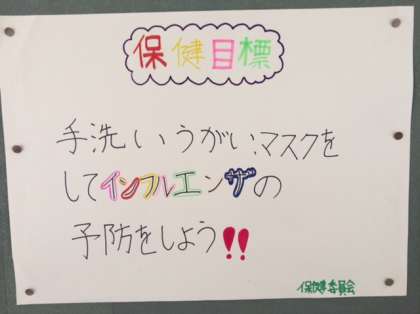 保健目標
手洗い、うがい、マスクを
してインフルエンザの
予防をしよう!!
保健委員会